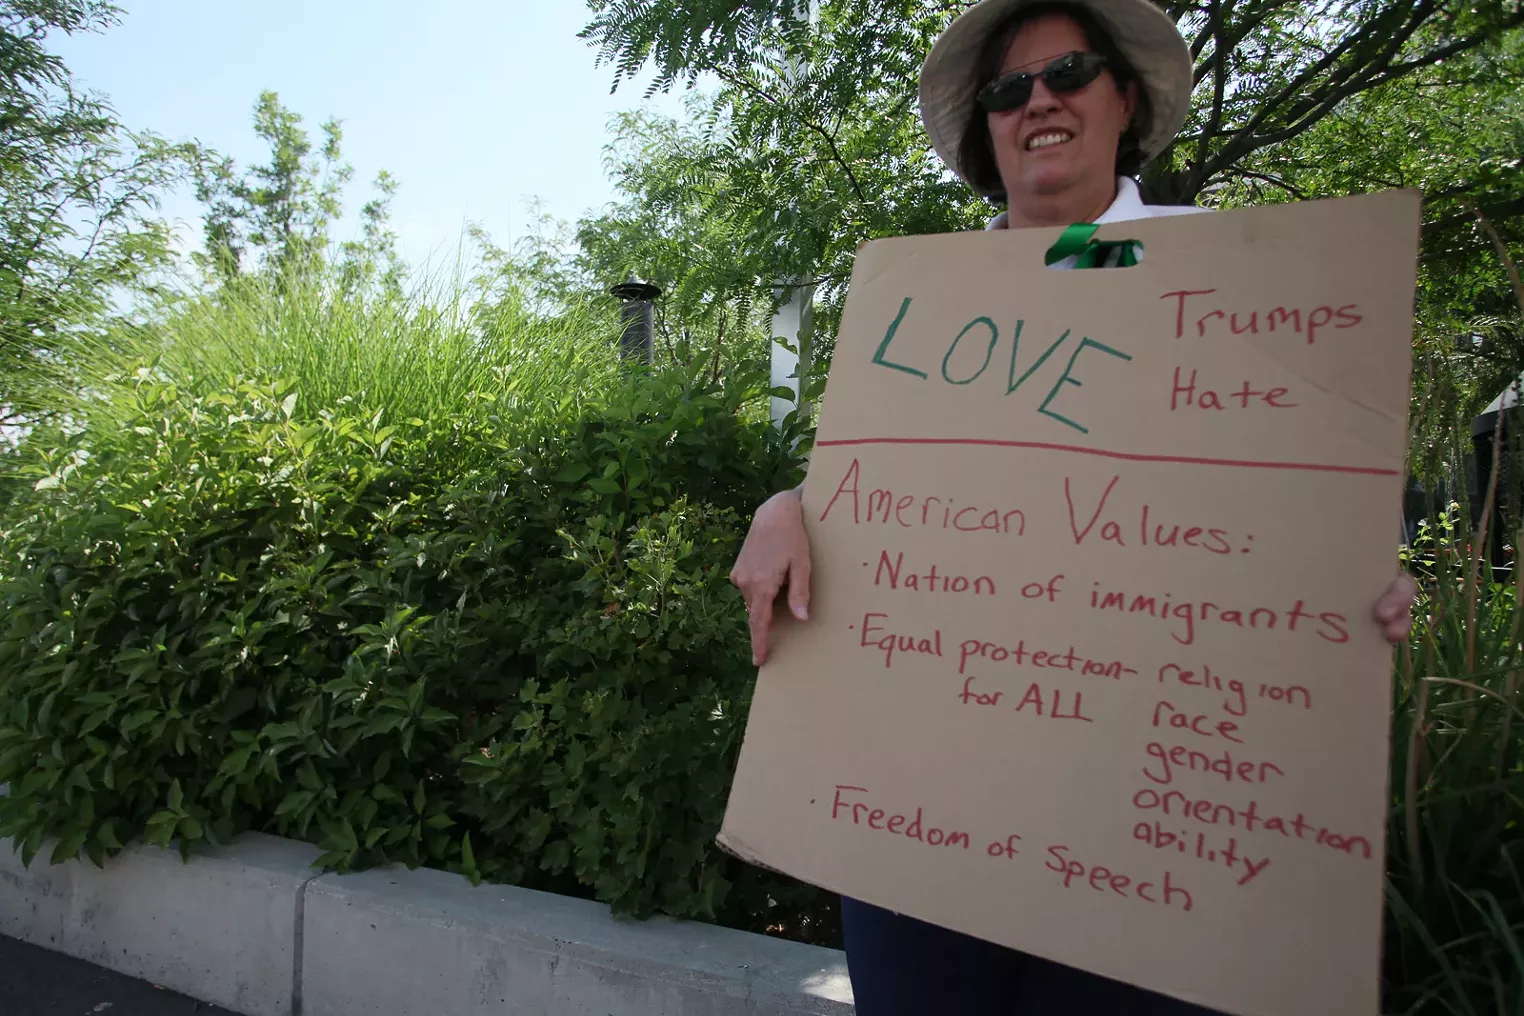 LOVE Trumps
Hate
American Values:
· Nation of immigrants
· Equal protection - religion
for ALL race
gender
orientation
ability
· Freedom of Speech